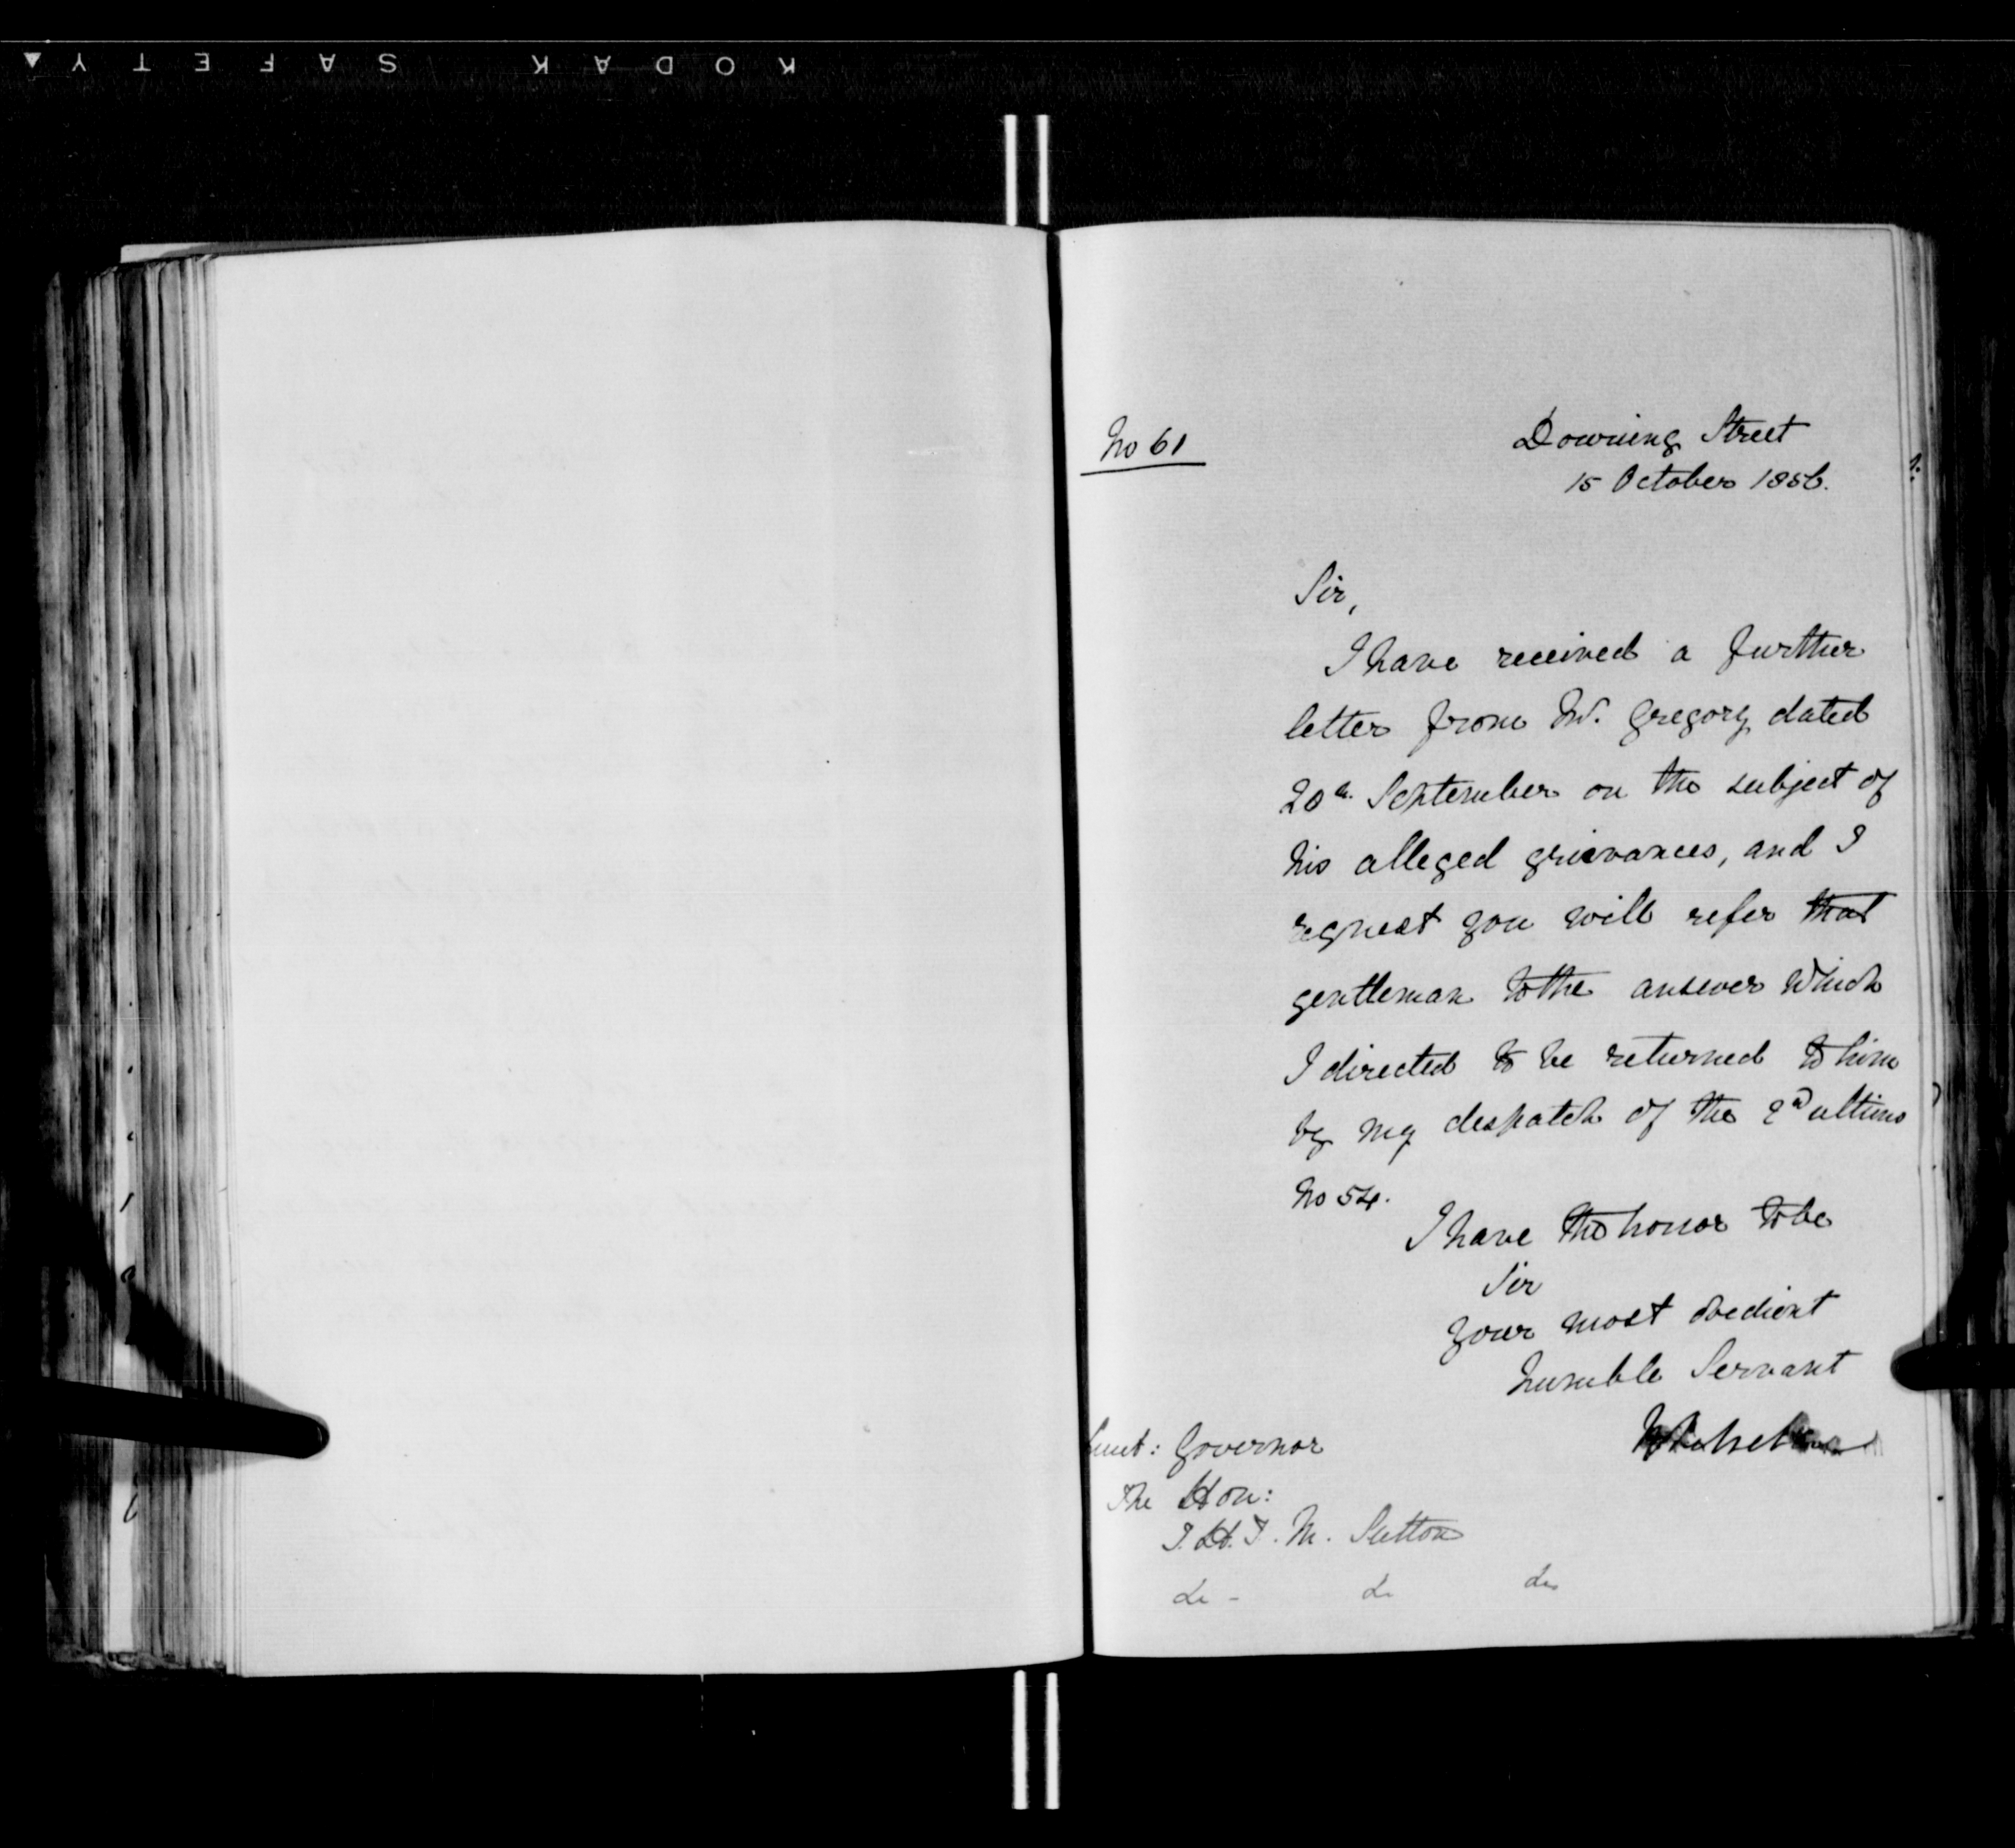 KODAK SAFETY
No 61
Downing Street
15 October 1856.
Sir,
I have received a further
letter from Mr. Gregory dated
20th. September on the subject of
his alleged grievances, and I
request you will refer that
gentleman to the answer which
I directed to be returned to him
by my despatch of the 2d ultimo
No 54.
I have the honor to be
Sir
Your most obedient
humble Servant
Governor
The Hon:
J. H. T. M. Sutton